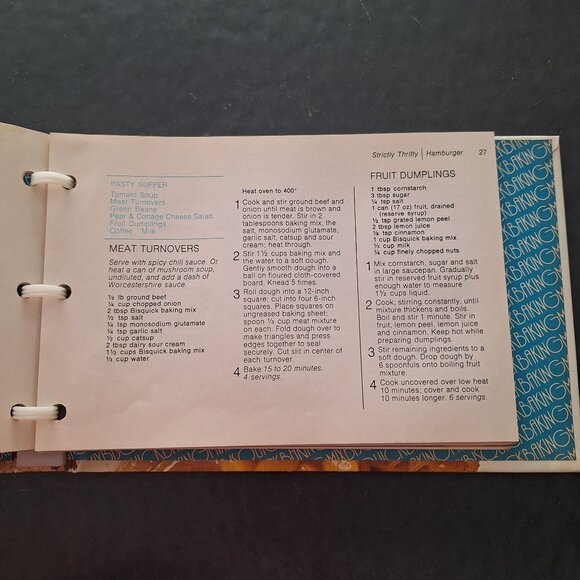 Strictly Thrifty | Hamburger 27
PASTY SUPPER
Tomato Soup
Meat Turnovers
Green Beans
Pear & Cottage Cheese Salad
Fruit Dumplings
Coffee Milk
MEAT TURNOVERS
Serve with spicy chili sauce. Or
heat a can of mushroom soup,
undiluted, and add a dash of
Worcestershire sauce.
½ lb ground beef
¼ cup chopped onion
2 tbsp Bisquick baking mix
½ tsp salt
¼ tsp monosodium glutamate
¼ tsp garlic salt
½ cup catsup
2 tbsp dairy sour cream
1½ cups Bisquick baking mix
⅓ cup water
Heat oven to 400°
1 Cook and stir ground beef and
onion until meat is brown and
onion is tender. Stir in 2
tablespoons baking mix, the
salt, monosodium glutamate,
garlic salt, catsup and sour
cream; heat through.
2 Stir 1½ cups baking mix and
the water to a soft dough.
Gently smooth dough into a
ball on floured cloth-covered
board. Knead 5 times.
3 Roll dough into a 12-inch
square; cut into four 6-inch
squares. Place squares on
ungreased baking sheet;
spoon ⅓ cup meat mixture
on each. Fold dough over to
make triangles and press
edges together to seal
securely. Cut slit in center of
each turnover.
4 Bake 15 to 20 minutes.
4 servings.
FRUIT DUMPLINGS
1 tbsp cornstarch
3 tbsp sugar
¼ tsp salt
1 can (17 oz) fruit, drained
(reserve syrup)
½ tsp grated lemon peel
2 tbsp lemon juice
⅛ tsp cinnamon
1 cup Bisquick baking mix
⅓ cup milk
¼ cup finely chopped nuts
1 Mix cornstarch, sugar and salt
in large saucepan. Gradually
stir in reserved fruit syrup plus
enough water to measure
1½ cups liquid.
2 Cook, stirring constantly, until
mixture thickens and boils.
Boil and stir 1 minute. Stir in
fruit, lemon peel, lemon juice
and cinnamon. Keep hot while
preparing dumplings.
3 Stir remaining ingredients to a
soft dough. Drop dough by
6 spoonfuls onto boiling fruit
mixture.
4 Cook uncovered over low heat
10 minutes; cover and cook
10 minutes longer. 6 servings.
BAKING